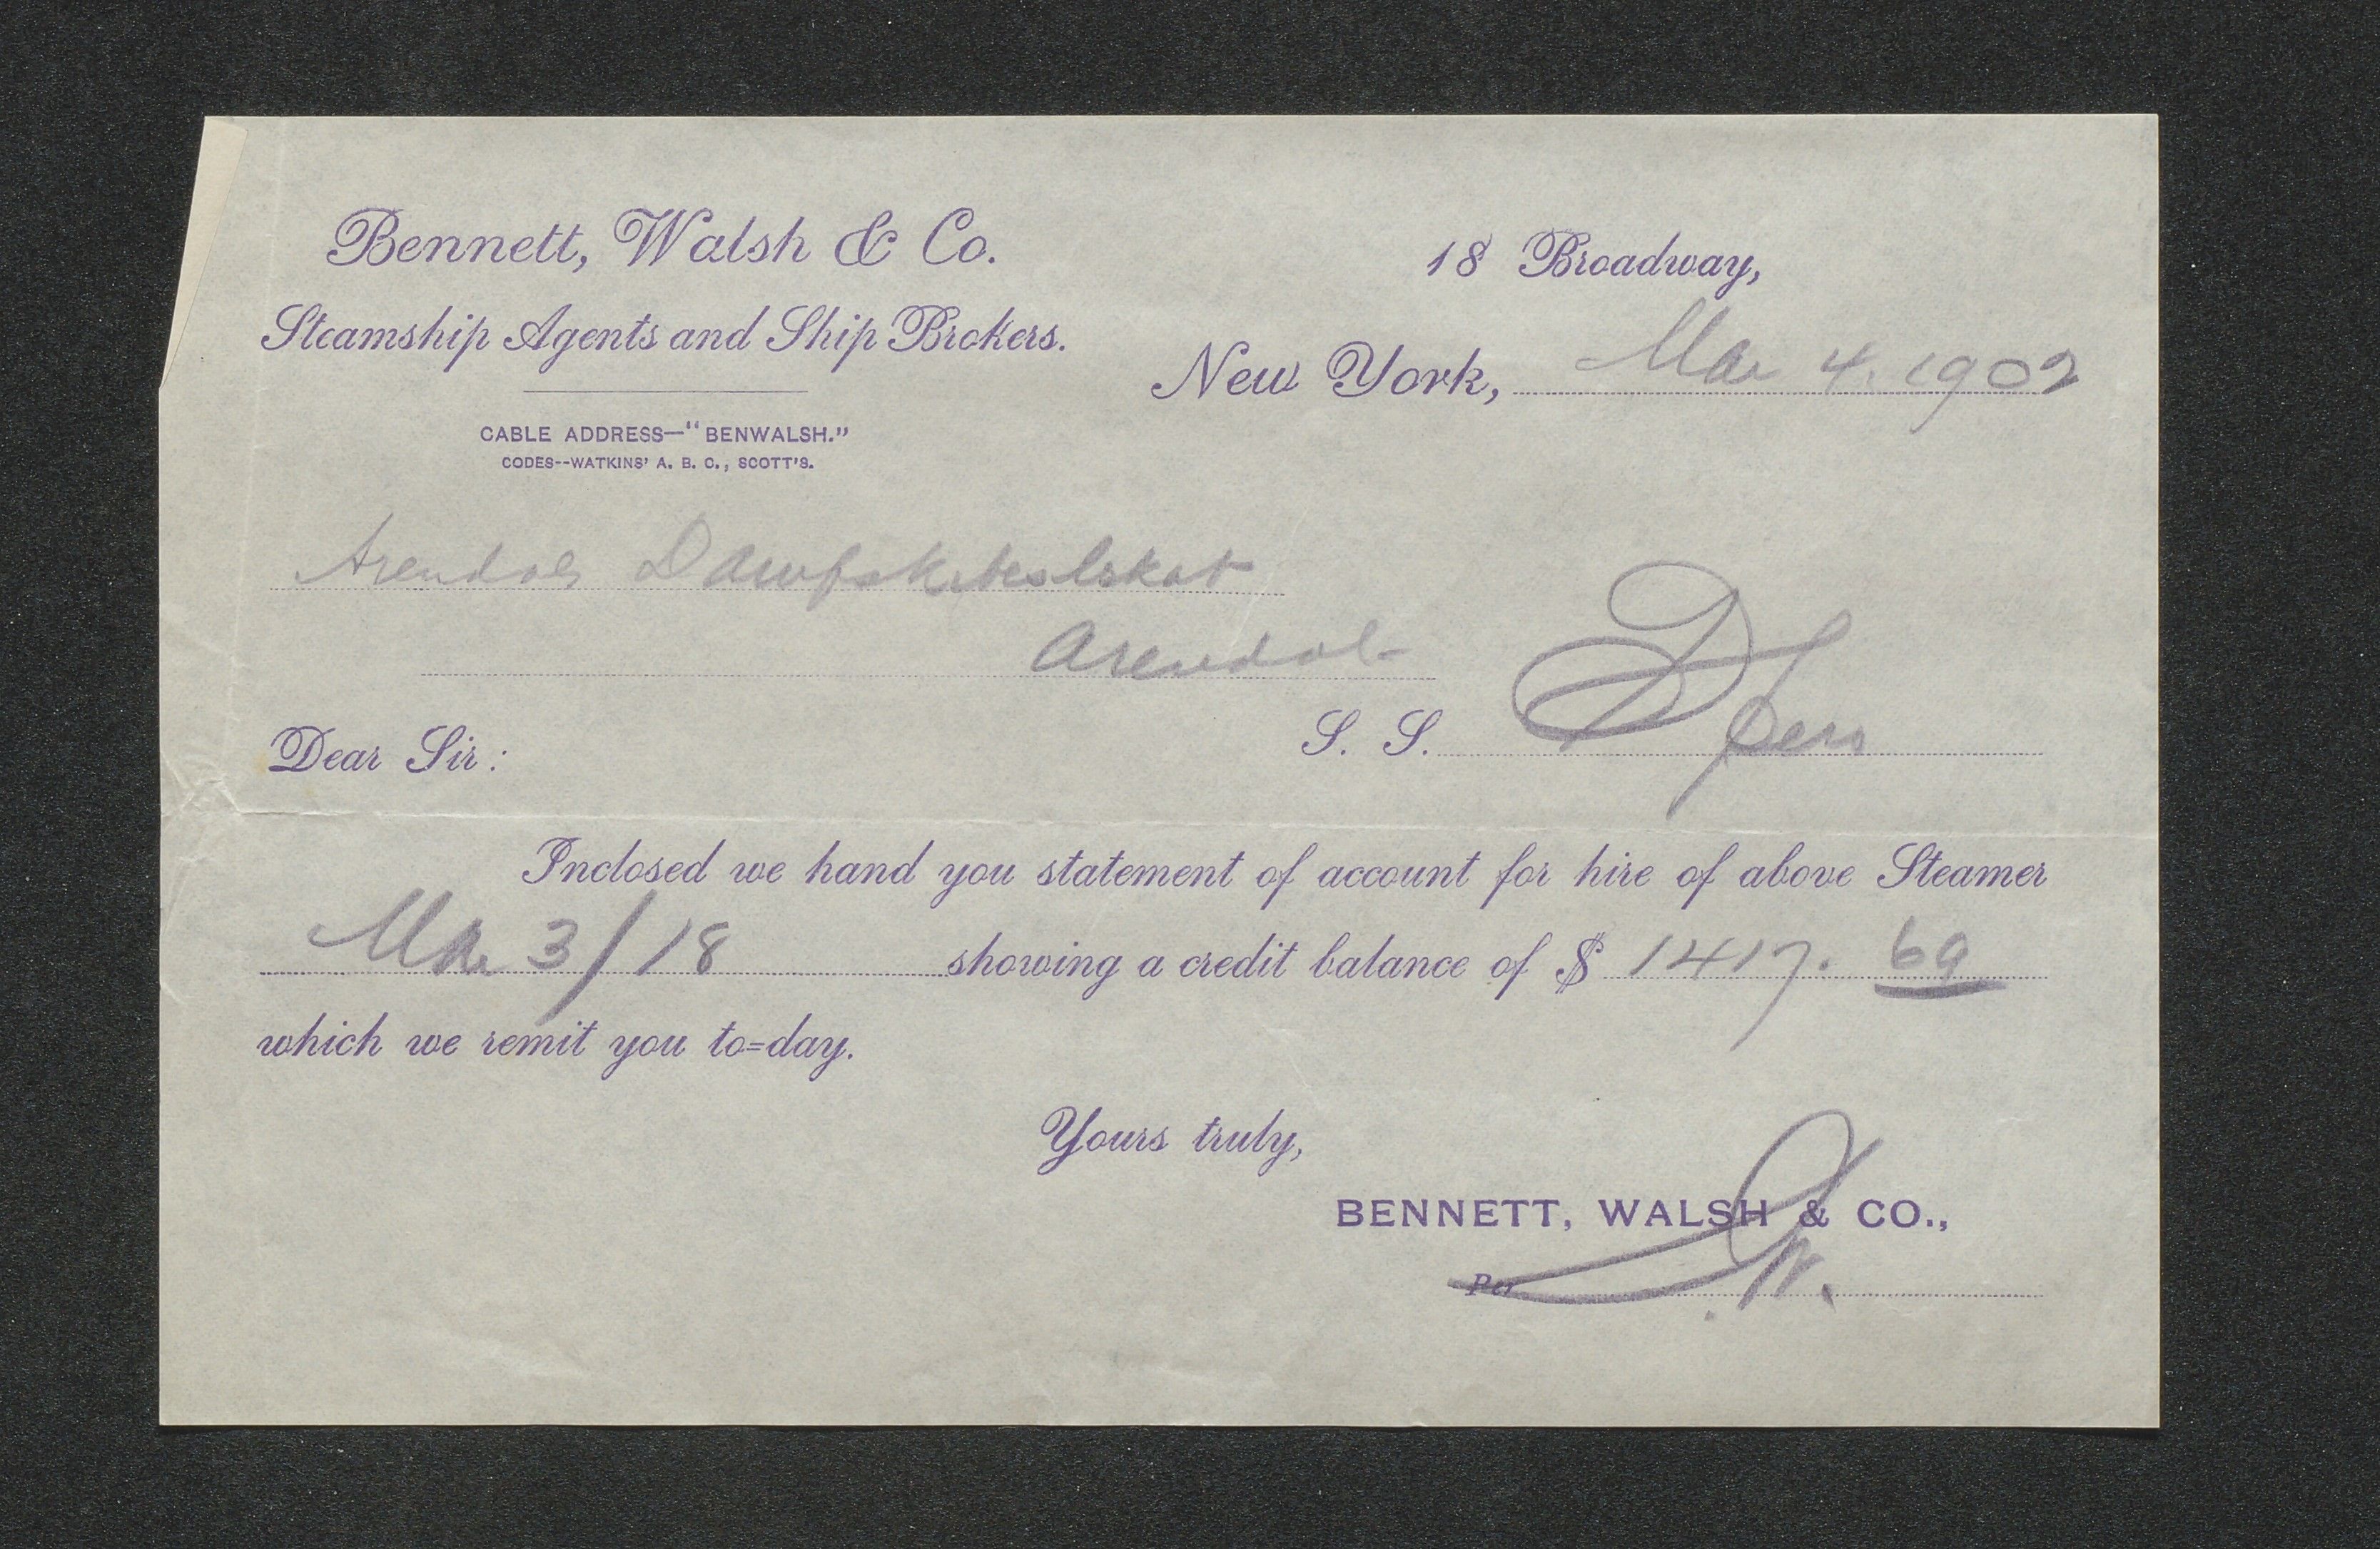 Bennett, Walsh & Co.
Steamship Agents and Ship Brokers.
CABLE ADDRESS—"BENWALSH."
CODES--WATKINS' A. B. C., SCOTT'S.
18 Broadway,
New York, Mar 4. 1902
Arendals Dampskibsselskab
Arendal
Dear Sir:
S. S.
Inclosed we hand you statement of account for hire of above Steamer
Mar 3/18 showing a credit balance of $ 1417. 69
which we remit you to=day.
Yours truly,
BENNETT, WALSH & CO.,
Per